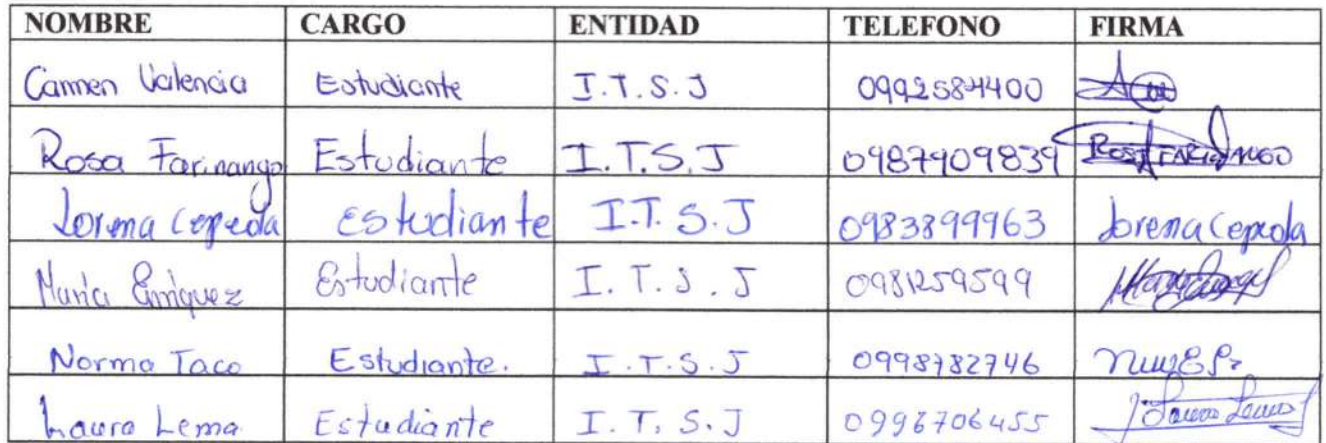 NOMBRE CARGO ENTIDAD TELEFONO FIRMA
Carmen Valencia Estudiante I.T.S.J 0992584400
Rosa Farinango Estudiante I.T.S.J 0987909839 ROSA FARINANGO
Lorena Cepeda estudiante I.T.S.J 0983899963 Lorena Cepeda
Maria Enriquez Estudiante I.T.S.J 0981259599
Norma Taco Estudiante. I.T.S.J 0998782746
Laura Lema Estudiante I.T.S.J 0998706455 Laura Lema